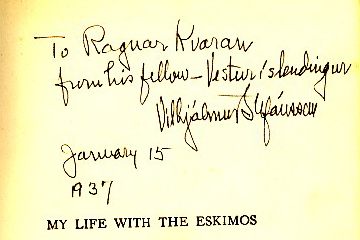 To Ragnar Kvaran
from his fellow-Vestur íslendingur
Vilhjálmur Stefánsson
January 15
1937
MY LIFE WITH THE ESKIMOS